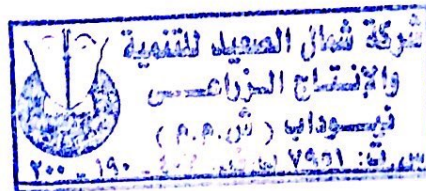 شركة شمال الصعيد للتنمية
والإنتاج الزراعى
نيوداب ( ش.م.م )
س.ت: ٧٩٥١ ١٩٠ - ٢٠٠